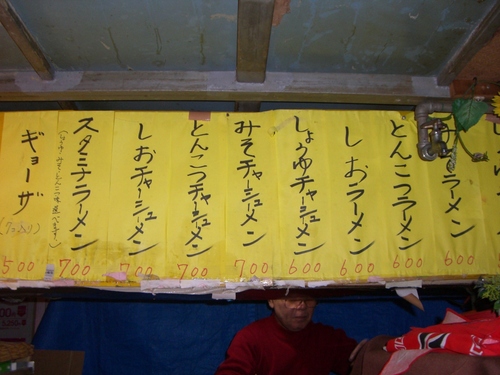 みそラーメン
600
とんこつラーメン
600
しおラーメン
600
しょうゆチャーシューメン
600
みそチャーシューメン
700
とんこつチャーシューメン
700
しおチャーシューメン
700
スタミナラーメン
700
ギョーザ
500